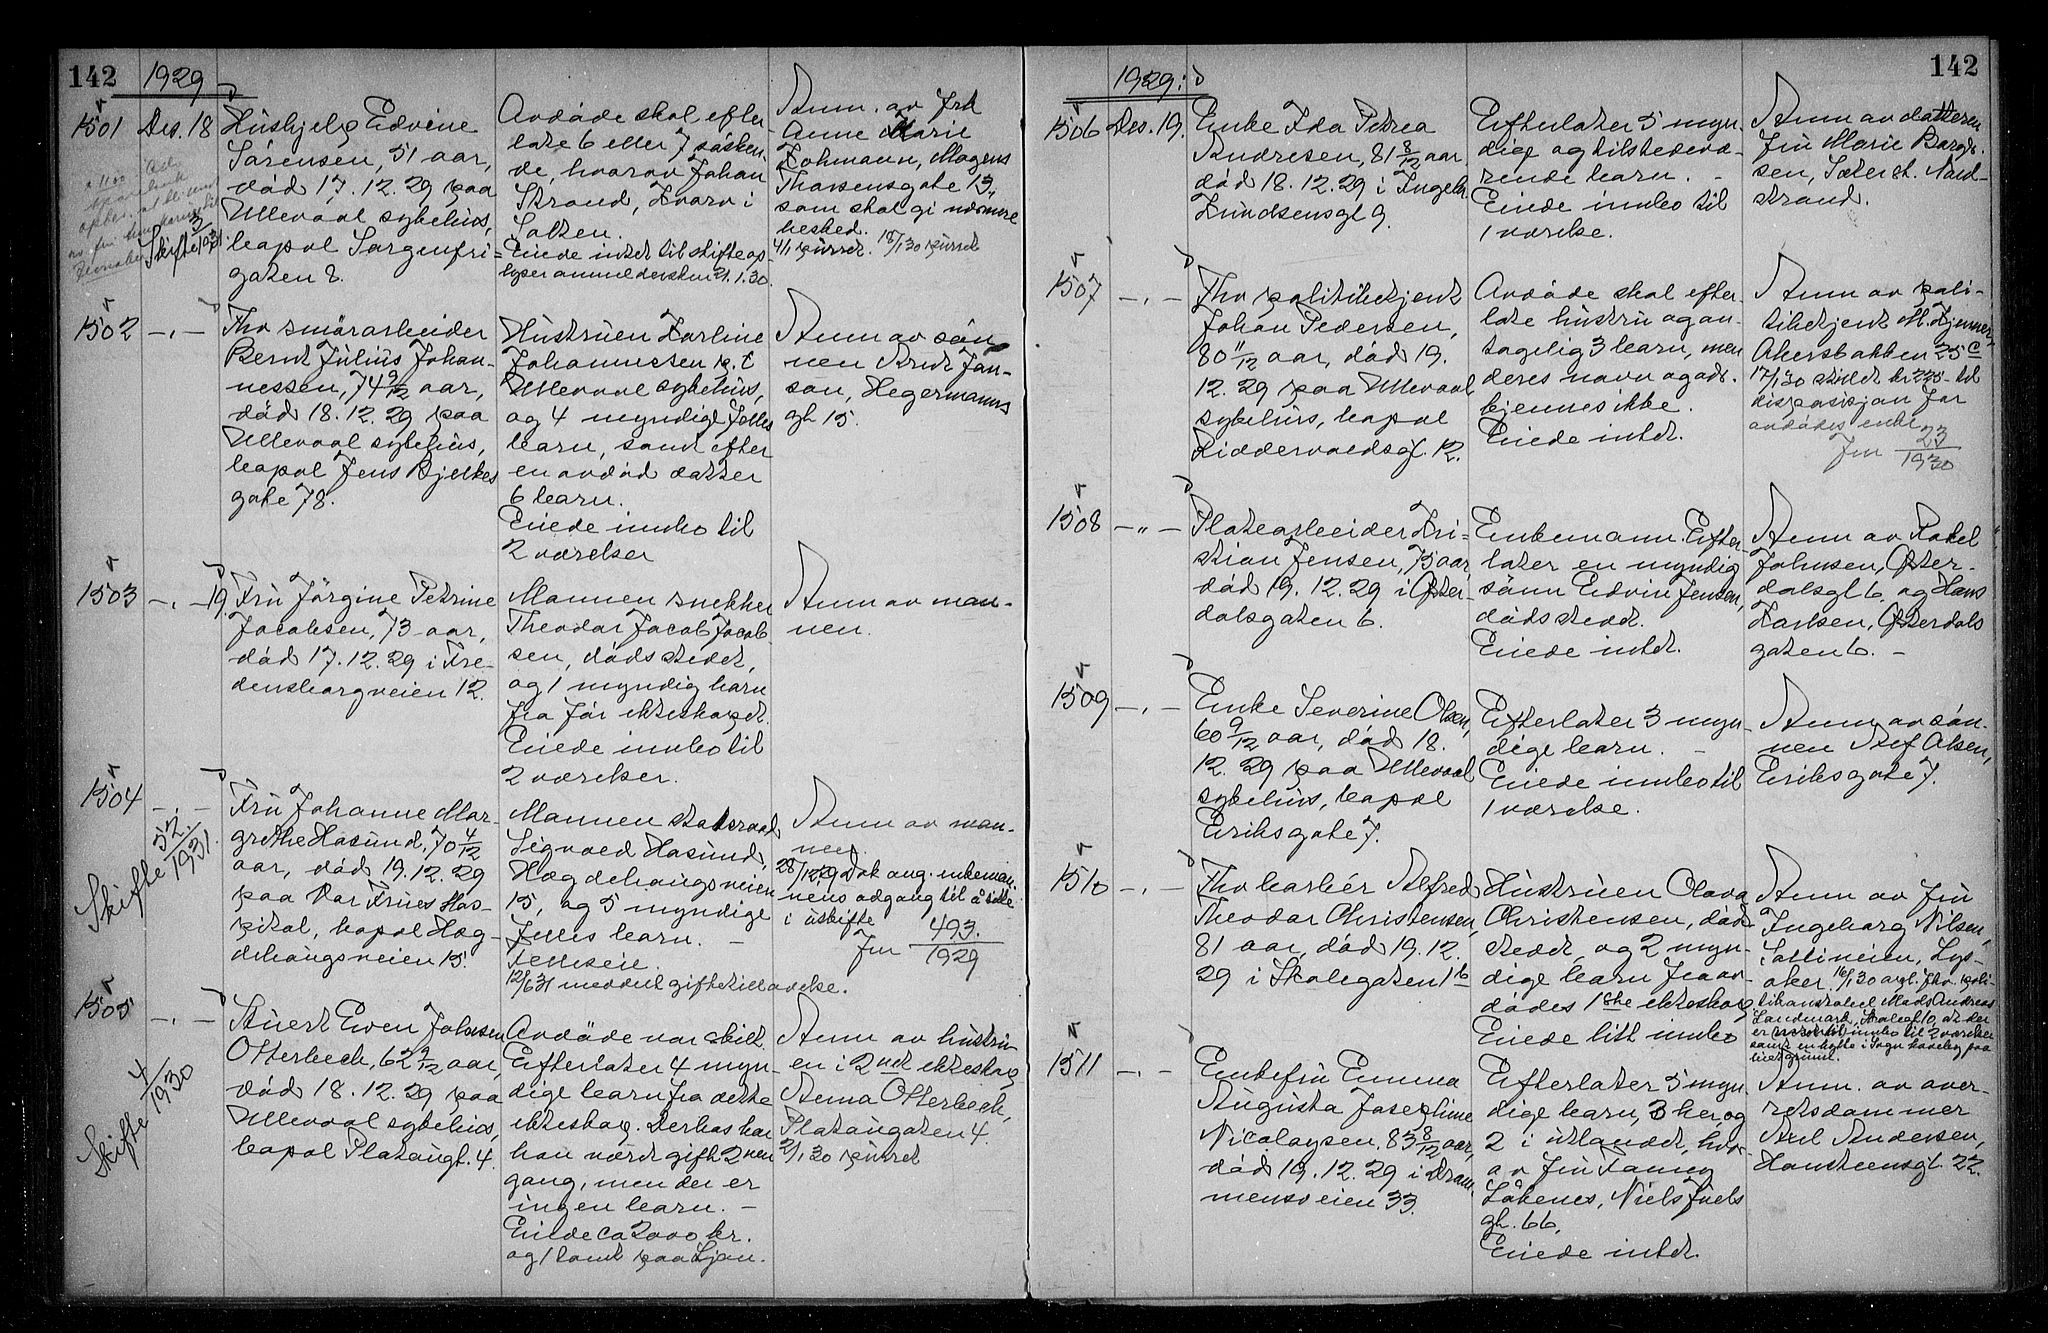 142
1929
1501
Des. 18
Skifte 3/1931
Hushjelp Edvine
Sørensen, 51 aar,
død 17.12.29 paa
Ullevaal sykehus,
bopæl Sorgenfri-
gaten 8.
Avdøde skal efter-
late 6 eller 7 søsken-
de, hvorav Johan
Strand, Kvarv i
Salten.
Eiede intet til skifte op-
lyser anmeldersken 21.1.30.
Anm. av frk
Anne Marie
Hohmann, Mogens
Thorsensgate 13,
som skal gi nærmere
besked.
4/1 purret. 18/1 30 purret
1502 -"-
Fhv smørarbeider
Bernt Julius Johan-
nessen, 74 9/12 aar,
død 18.12.29 paa
Ullevaal sykehus,
bopæl Jens Bjelkes
gate 78.
Hustruen Karline
Johannessen p.t
Ullevaal sykehus,
og 4 myndige felles
barn, samt efter
en avdød datter
6 barn.
Eiede innbo til
2 værelser
Anm av søn-
nen Arnt Jan-
son, Hegermanns
gt 15.
1503 -"- 19.
Fru Jørgine Petrine
Jacobsen, 73 aar,
død 17.12.29 i Fre-
densborgveien 12.
Mannen snekker
Theodor Jacob Jacob-
sen, dødsstedet,
og 1 myndig barn
fra før ekteskapet.
Eiede innbo til
2 værelser.
Anm av man-
nen.
1504 -"-
Skifte 52/1931.
Fru Johanne Mar-
grethe Hasund, 70 4/12
aar, død 19.12.29
paa Vor Frues Hos-
pital, bopæl Hæg-
dehaugsveien 15.
Mannen statsraad
Sigvald Hasund,
Hægdehaugsveien
15, og 5 myndige
felles barn. -
Felleseie.
12/6 31 meddelt giftetillatelse.
Anm av man-
nen.
28/12 29 Dok ang. enkeman-
nens adgang til å sitte
i uskifte
Jm 493/1929
1505 -"-
Skifte 4/1930
Stuert Even Johnsen
Otterbech, 62 2/12 aar,
død 18.12.29 paa
Ullevaal sykehus,
bopæl Platougt. 4.
Avdøde var skilt.
Efterlater 4 myn-
dige barn fra dette
ekteskap. Derhos har
han været gift 2nen
gang, men der er
ingen barn. -
Eiede ca 2000 kr.
og 1 tomt paa Ljan.
Anm av hustru-
en i 2net ekteskap
Anna Otterbech,
Platougaten 4.
2/1 30 purret
142
1929:
1506 Des. 19.
Enke Ida Petrea
Andresen, 81 8/12 aar
død 18.12.29 i Ingeb.
Knudsensgt 9.
Efterlater 5 myn-
dige og tilstedevæ-
rende barn. -
Eiede innbo til
1 værelse.
Anm av datteren
fru Marie Borge-
sen, Sæter st. Nord-
strand.
1507 -"-
Fhv politibetjent
Johan Pedersen,
80 11/12 aar, død 19.
12.29 paa Ullevaal
sykehus, bopæl
Riddervoldsgt. 12.
Avdøde skal efter-
late hustru og an-
tagelig 3 barn, men
deres navn og adr.
kjennes ikke.
Eiede intet.
Anm av poli-
tibetjent M.
Akersbakken 25c
17/1 30 stillet kr 225 - til
disposisjon for
avdødes enke
Jm 23/1930
1508 -"-
Platearbeider Kri-
stian Jensen, 75 aar,
død 19.12.29 i Øster-
dalsgaten 6.
Enkemann. Efter-
later en myndig
sønn Edvin Jensen,
dødsstedet.
Eiede intet.
Anm av Rakel
Johnsen, Øster-
dalsgt 6. og Hans
Karlsen, Østerdals
gaten 6. -
1509 -"-
Enke Severine Olsen,
60 9/12 aar, død 18.
12.29 paa Ullevaal
sykehus, bopæl
Eriksgate 7.
Efterlater 3 myn-
dige barn. -
Eiede innbo til
1 værelse.
Anm av søn-
nen Alf Olsen,
Eriksgate 7.
1510 -"-
Fhv barbér Alfred
Theodor Christensen,
81 aar, død 19.12.
29 i Skolegaten 1b
Hustruen Olava
Christensen, døds-
stedet, og 2 myn-
dige barn fra av-
dødes 1ste ekteskap
Eiede litt innbo
Anm av fru
Ingeborg Nilsen,
Solliveien, Lys-
aker. 16/1 30 opl. fhv. poli-
tikonstabel Mads Andreas
Landmark, Skolegt 10, at der
er innbo til 2 værelser
samt en hytte i Sogn haveby paa
leiet grunn.
1511 -"-
Enkefru Emma
Augusta Josephine
Nicolaysen. 83 8/12 aar,
død 19.12.29 i Dram-
mensveien 33.
Efterlater 5 myn-
dige barn, 3 her, og
2 i utlandet, hvor-
av fru Fanny
Låkenes, Niels Juels
gt. 66.
Eiede intet.
Anm. av over-
retsdommer
Axel Andersen,
Hansteensgt. 22.